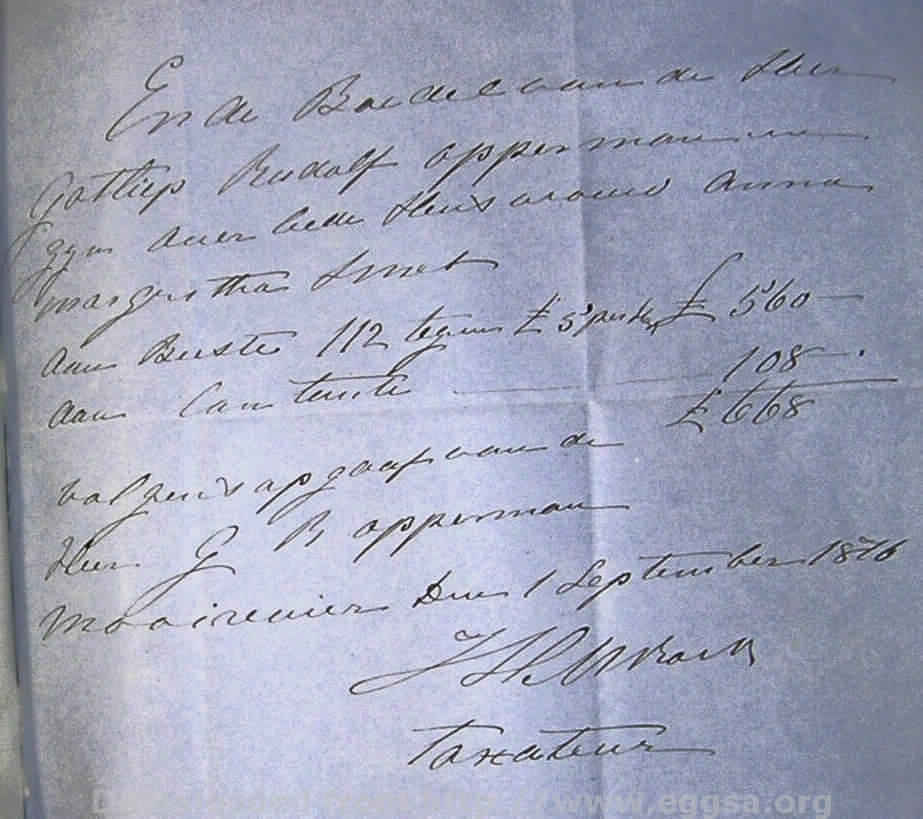 En de Boedel van de Heer
Gotliep Rudolf Opperman en
zyn overlede Huisvrouw Anna
Margretha Smet
aan Beeste 112 tegen £ 5 per st £ 560 —
aan Contente — 108 — .
£ 668
volgens opgaaf van de
Heer G R Opperman
Mooirevier Den 1 September 1876
Taxateur
www.eggsa.org